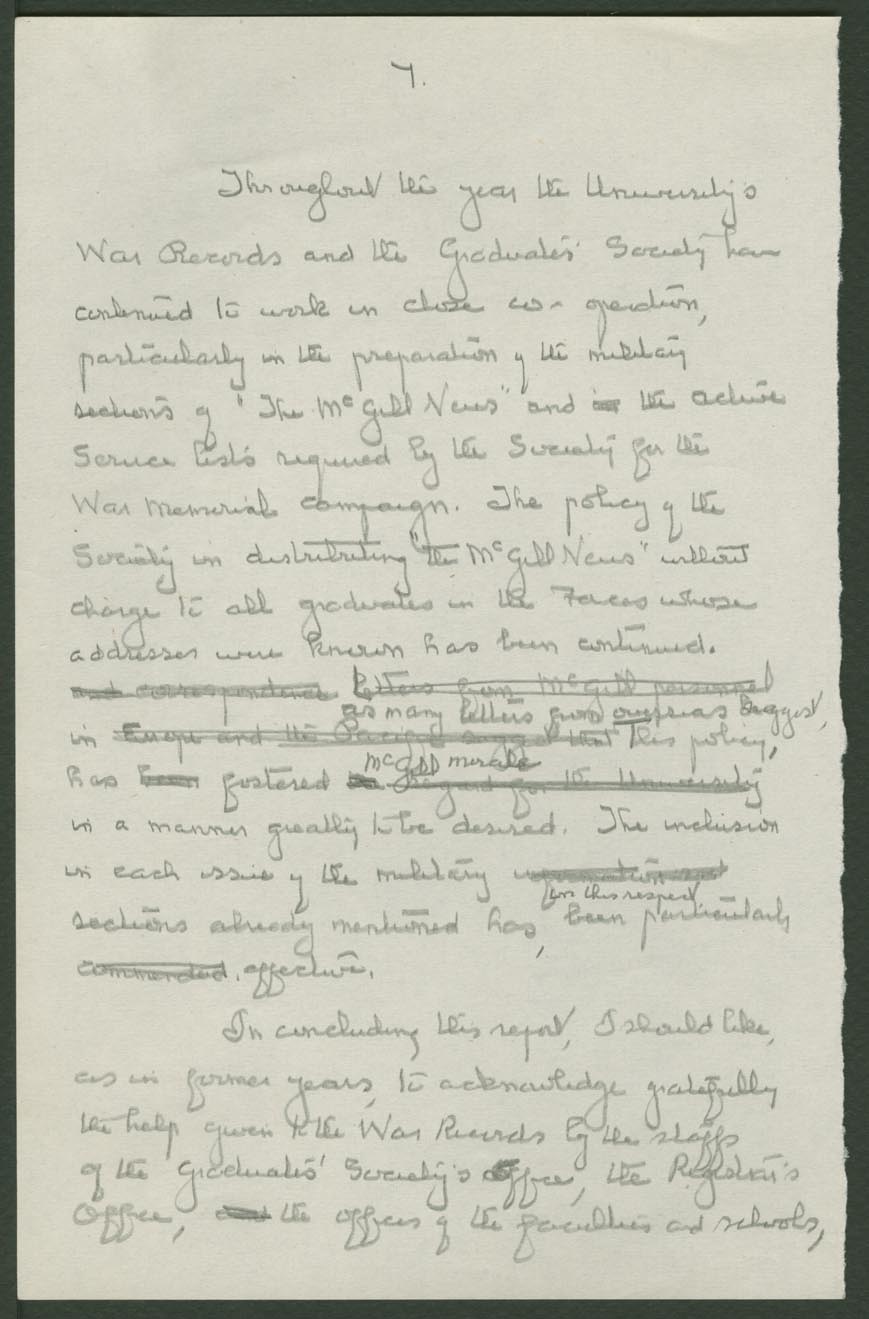 7.
Throughout the year the University's
War Records and the Graduates' Society have
continued to work in close co-operation,
particularly in the preparation of the military
sections of "The McGill News" and in the Active
Service lists required by the Society for the
War Memorial campaign. The policy of the
Society in distributing "the McGill News" without
charge to all graduates in the Forces whose
addresses were known has been continued.
and correspondence letters from McGill personnel
as many letters from overseas suggest,
in Europe and the Pacific suggest that this policy,
McGill morale
has been fostered regard for the University
in a manner greatly to be desired. The inclusion
in each issue of the military information and
in this respect
sections already mentioned has, been particularly
commended. effective.
In concluding this report, I should like,
as in former years, to acknowledge gratefully
the help given to the War Records by the staffs
of the Graduates' Society's Office, the Registrar's
Office, and the offices of the faculties and schools,